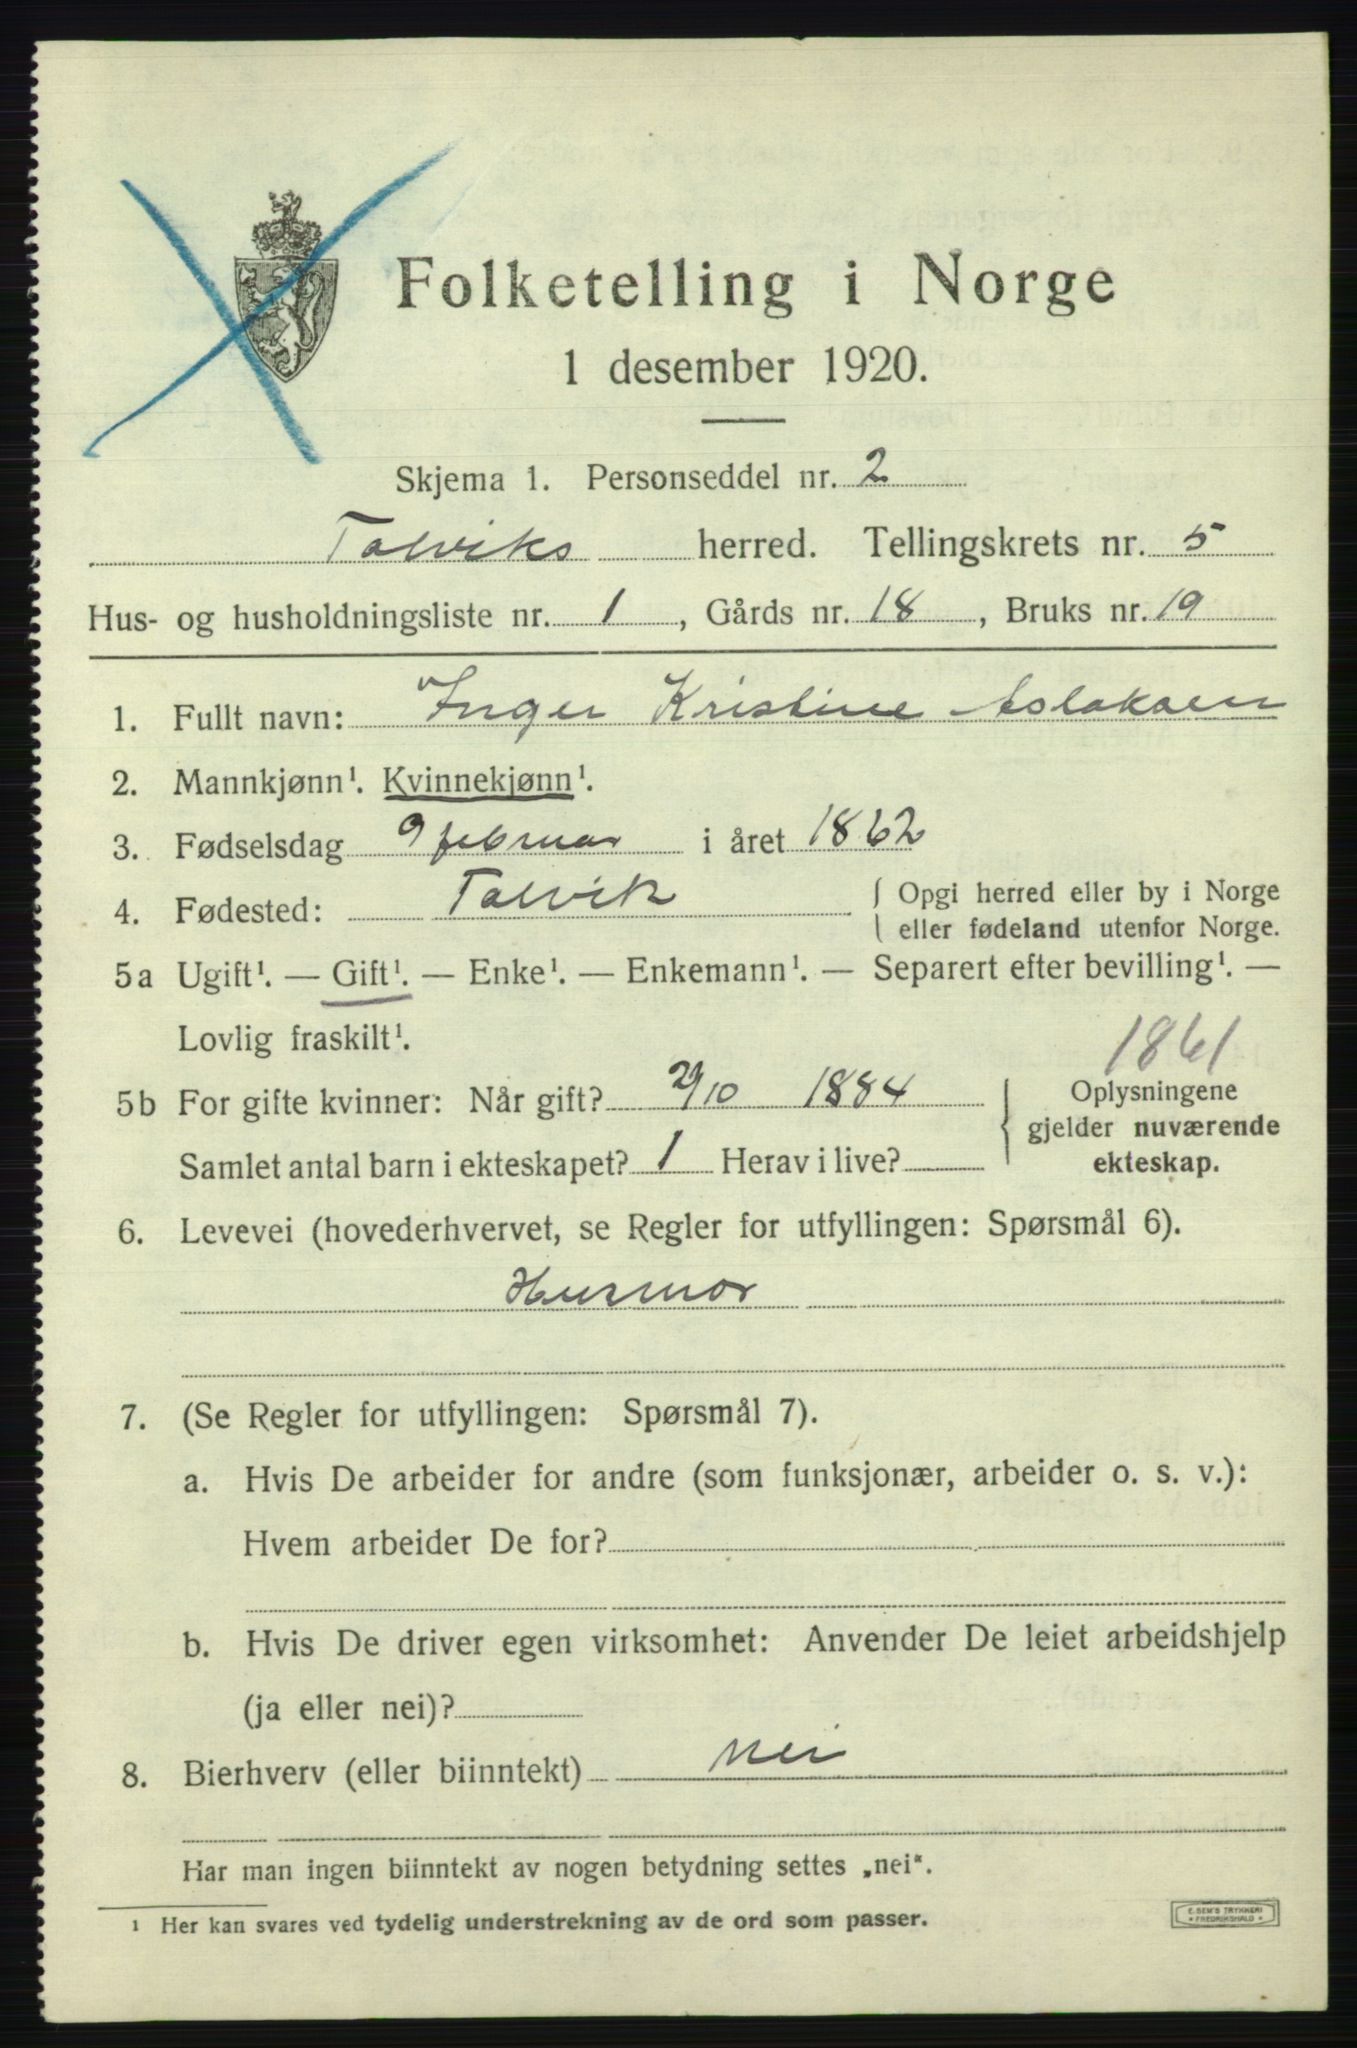 Folketelling i Norge
1 desember 1920.
Skjema 1. Personseddel nr. 2
Talviks herred. Tellingskrets nr. 5
Hus- og husholdningsliste nr. 1, Gårds nr. 18, Bruks nr. 19
1. Fullt navn: Inger Kristine Aslaksen
2. Mannkjønn¹. Kvinnekjønn¹.
3. Fødselsdag 9 februar i året 1862
4. Fødested: Talvik { Opgi herred eller by i Norge
eller fødeland utenfor Norge.
5a Ugift¹. — Gift¹. — Enke¹. — Enkemann¹. — Separert efter bevilling¹. —
Lovlig fraskilt¹.
1861
5b For gifte kvinner: Når gift? 29/10 1884
Samlet antal barn i ekteskapet? 1 Herav i live?
Oplysningene
gjelder nuværende
ekteskap.
6. Levevei (hovederhvervet, se Regler for utfyllingen: Spørsmål 6).
Husmor
7. (Se Regler for utfyllingen: Spørsmål 7).
a. Hvis De arbeider for andre (som funksjonær, arbeider o. s. v.):
Hvem arbeider De for?
b. Hvis De driver egen virksomhet: Anvender De leiet arbeidshjelp
(ja eller nei)?
8. Bierhverv (eller biinntekt) nei
Har man ingen biinntekt av nogen betydning settes „nei“.
¹ Her kan svares ved tydelig understrekning av de ord som passer.
E. SEM'S TRYKKERI
* FREDRIKSHALD *